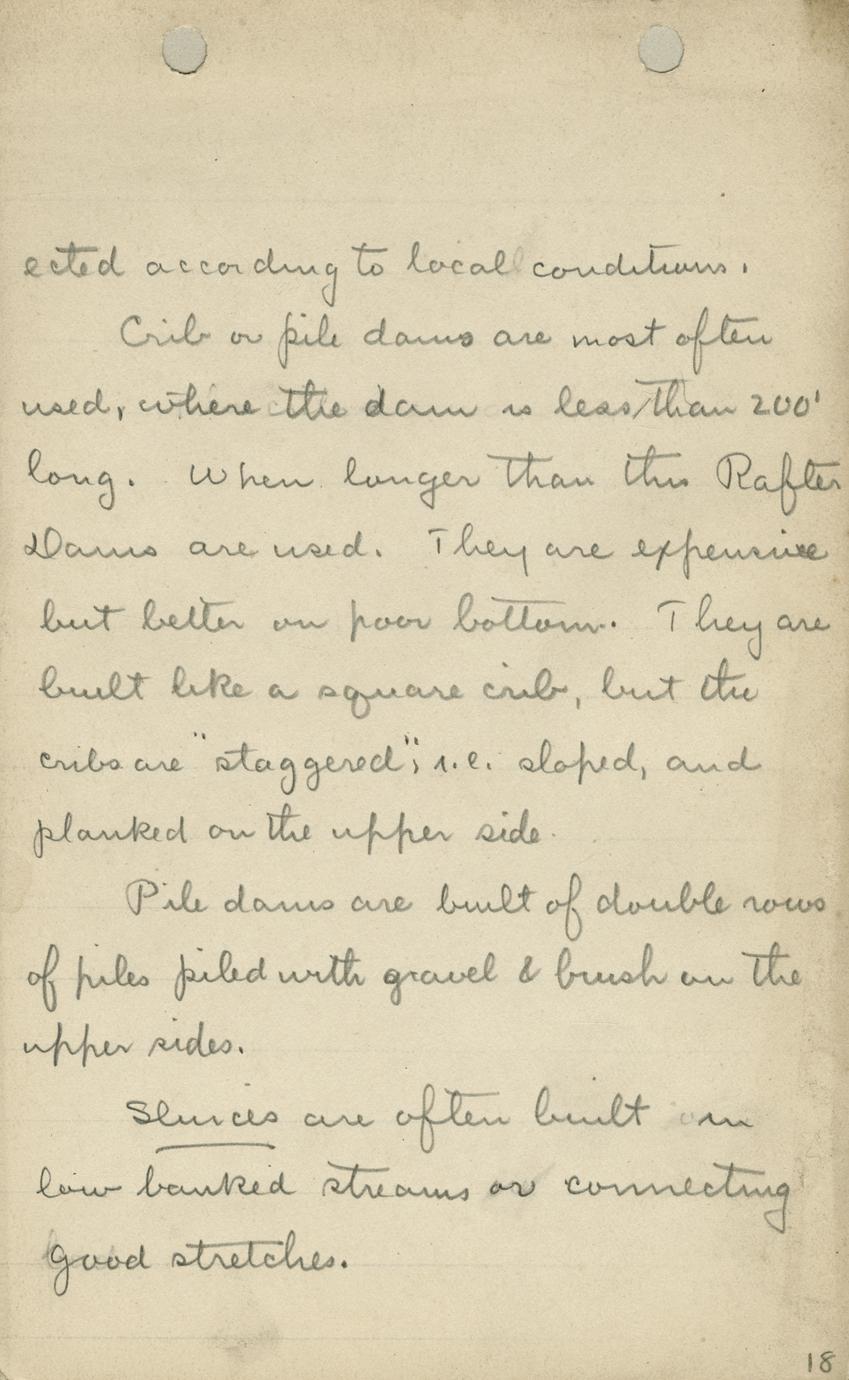 ected according to local conditions.
Crib or pile dams are most often
used, where the dam is less than 200'
long. When longer than this Rafter
Dams are used. They are expensive
but better on poor bottom. They are
built like a square crib, but the
cribs are "staggered"; i.e. sloped, and
planked on the upper side.
Pile dams are built of double rows
of piles piled with gravel & brush on the
upper sides.
Sluices are often built in
low banked streams or connecting
good stretches.
18